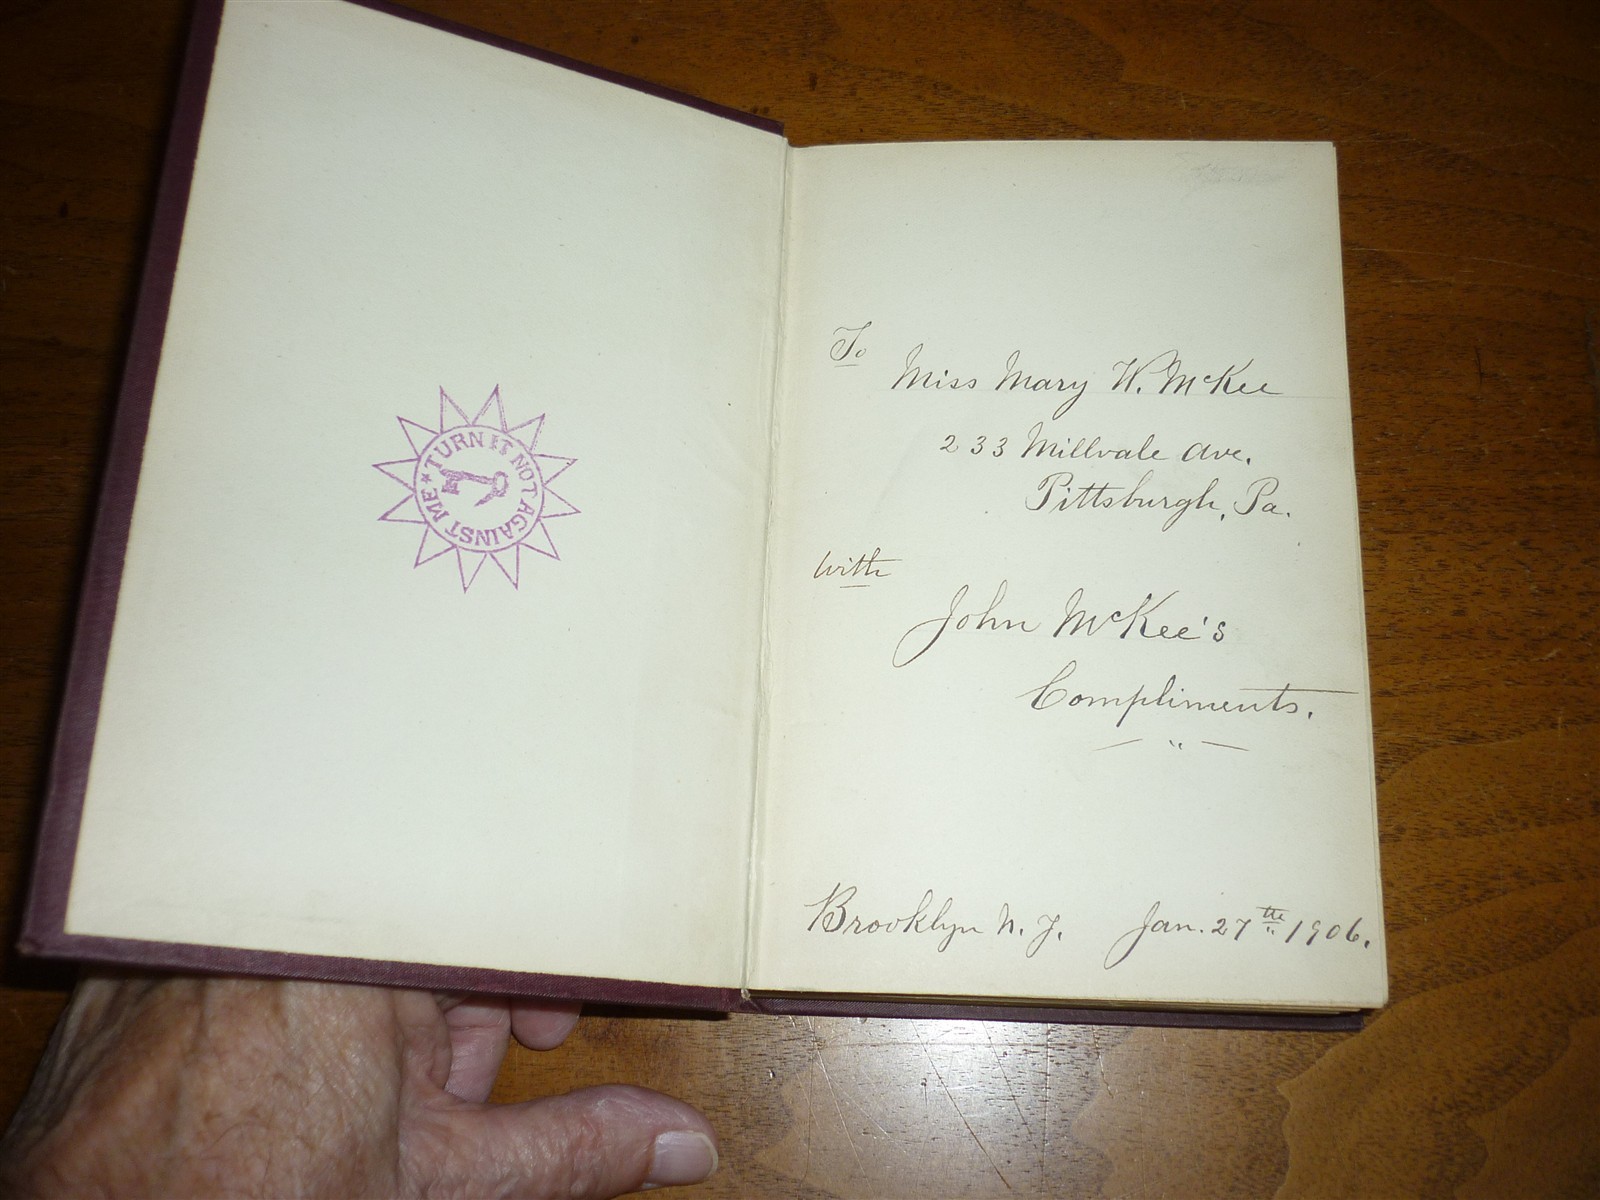 ★ TURN IT NOT AGAINST ME
To
Miss Mary W. McKee
233 Millvale Ave.
Pittsburgh, Pa.
with
John McKee's
Compliments.
Brooklyn N. Y. Jan. 27th 1906.